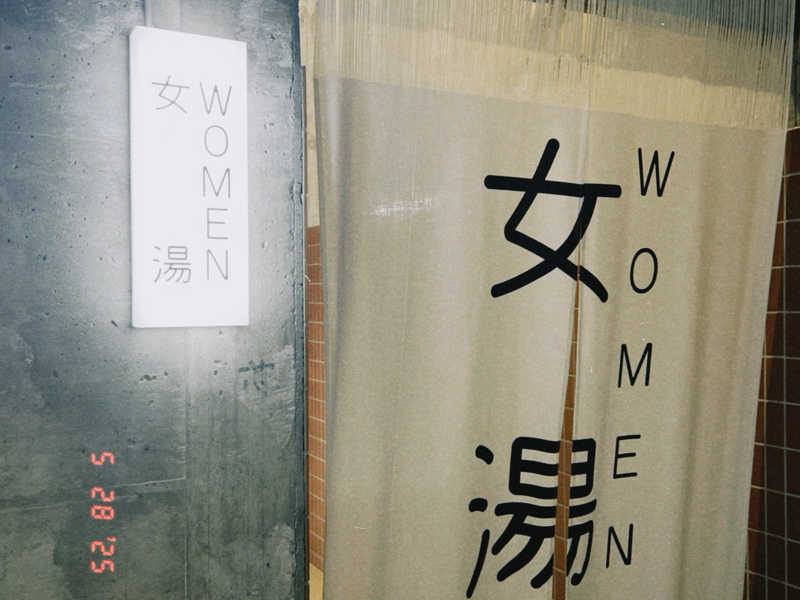 女湯
WOMEN
女湯
WOMEN
5 28 '25